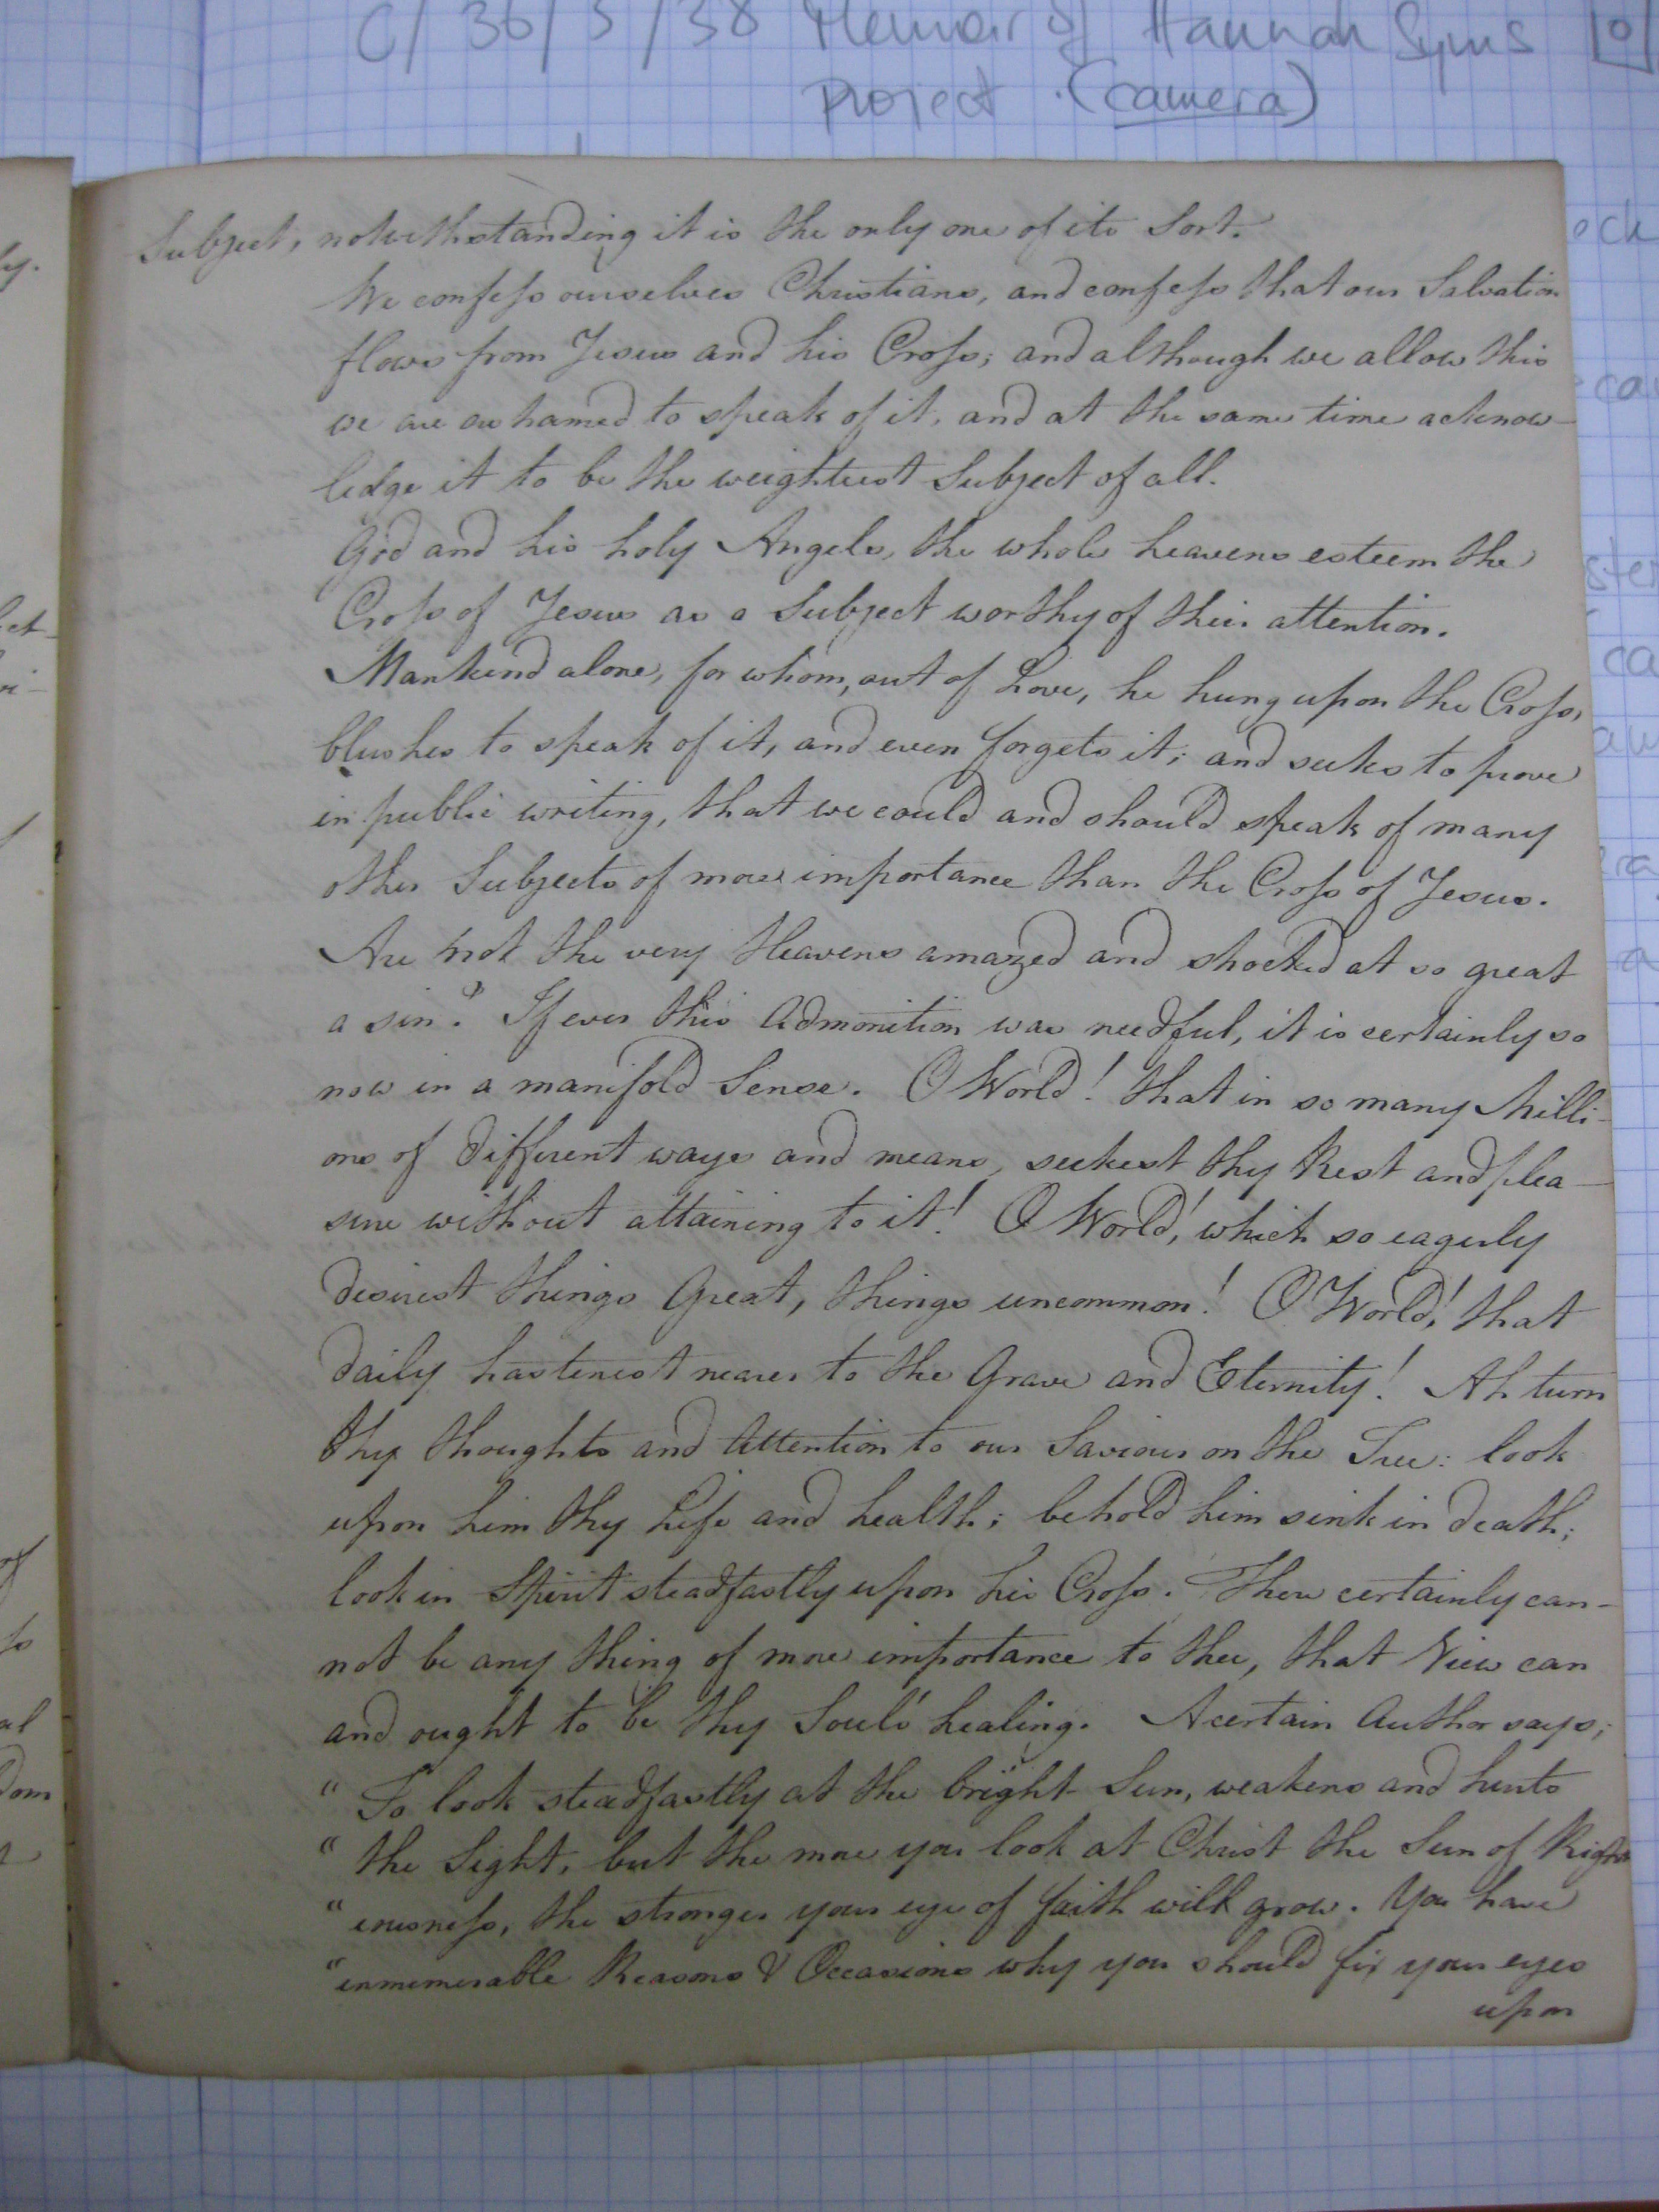 C/36/5/38 Memoir of Hannah Syms
Project (camera)
Subject, notwithstanding it is the only one of its Sort.
We confeſs ourselves Christians, and confeſs that our Salvation
flows from Jesus and his Croſs; and although we allow this
we are ashamed to speak of it, and at the same time acknow-
ledge it to be the weightiest Subject of all.
God and his holy Angels, the whole heavens esteem the
Croſs of Jesus as a Subject worthy of their attention.
Mankind alone, for whom, out of Love, he hung upon the Croſs,
blushes to speak of it, and even forgets it; and seeks to prove
in public writing, that we could and should speak of many
other Subjects of more importance than the Croſs of Jesus.
Are not the very Heavens amazed and shocked at so great
a sin? If ever this Admonition was needful, it is certainly so
now in a manifold Sense. O World! that in so many Milli-
ons of different ways and means, seekest thy Rest and plea-
sure without attaining to it! O World! which so eagerly
desirest things Great, things uncommon! O World! that
daily hastenest nearer to the Grave and Eternity! Ah turn
thy thoughts and Attention to our Saviour on the Tree: look
upon him thy Life and health; behold him sink in death;
look in Spirit steadfastly upon his Croſs. There certainly can-
not be any thing of more importance to thee, that View can
and ought to be thy Soul's healing. A certain Author says;
" To look steadfastly at the bright Sun, weakens and hurts
" the Sight, but the more you look at Christ the Sun of Right
" eousneſs, the stronger your eye of faith will grow. You have
" innumerable Reasons & Occasions why you should fix your eyes
upon